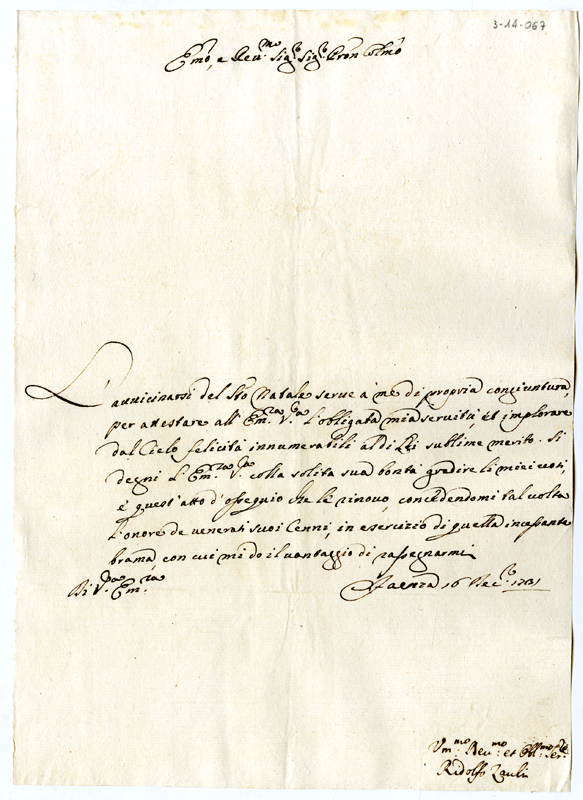 3-14-067
Emo, e Reu.mo Sig.r Sig.r Pron Colmo
L'auuicinarsi del Sto Natale serue à me di propria congiuntura,
per attestare all'Em.za V.ra l'obligata mia seruitù, et implorare
dal Cielo felicità innumerabili al di Lei sublime merito. Si
degni l'Em.za V.ra colla solita sua bontà gradire li miei uoti,
e quest'atto d'ossequio che le rinouo, concedendomi tal uolta
l'onore de uenerati suoi Cenni, in esercizio di quella incessante
brama con cui mi do il uantaggio di rassegnarmi
Di V.ra Em.za
Faenza 16 Dec.e 1731
Vm.mo Deu.mo et Obl.mo Ser.e
Ridolfo Zauli